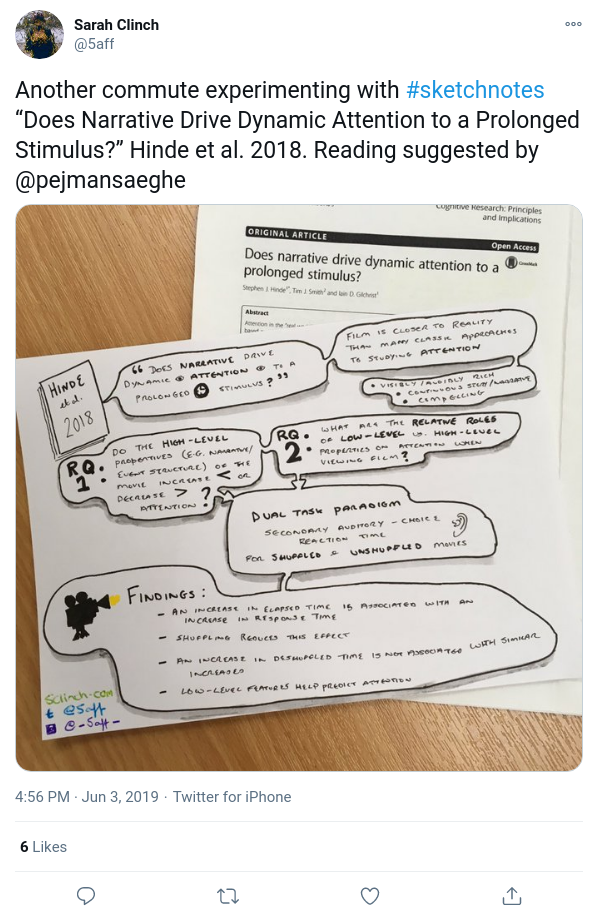 Sarah Clinch
@5aff
Another commute experimenting with #sketchnotes
“Does Narrative Drive Dynamic Attention to a Prolonged
Stimulus?” Hinde et al. 2018. Reading suggested by
@pejmansaeghe
Cognitive Research: Principles
and Implications
ORIGINAL ARTICLE
Open Access
Does narrative drive dynamic attention to a
prolonged stimulus?
CrossMark
Stephen J. Hinde*, Tim J. Smith and Iain D. Gilchrist
Abstract
Attention in the
based
HINDE
et al.
2018
“ DOES NARRATIVE DRIVE
DYNAMIC ATTENTION TO A
PROLONGED STIMULUS? ”
FILM IS CLOSER TO REALITY
THAN MANY CLASSIC APPROACHES
TO STUDYING ATTENTION
• VISIBLY/AUDIBLY RICH
• CONTINUOUS STORY/NARRATIVE
• COMPELLING
RQ.
1:
DO THE HIGH-LEVEL
PROPERTIES (E.G. NARRATIVE/
EVENT STRUCTURE) OF THE
MOVIE INCREASE < OR
DECREASE > ?
ATTENTION?
RQ.
2:
WHAT ARE THE RELATIVE ROLES
OF LOW-LEVEL vs. HIGH-LEVEL
PROPERTIES ON ATTENTION WHEN
VIEWING FILM?
DUAL TASK PARADIGM
SECONDARY AUDITORY-CHOICE
REACTION TIME
FOR SHUFFLED & UNSHUFFLED MOVIES
FINDINGS:
– AN INCREASE IN ELAPSED TIME IS ASSOCIATED WITH AN
INCREASE IN RESPONSE TIME
– SHUFFLING REDUCES THIS EFFECT
– AN INCREASE IN DESHUFFLED TIME IS NOT ASSOCIATED WITH SIMILAR
INCREASES
– LOW-LEVEL FEATURES HELP PREDICT ATTENTION
sclinch.com
t @5aff
@-5aff-
4:56 PM · Jun 3, 2019 · Twitter for iPhone
6 Likes